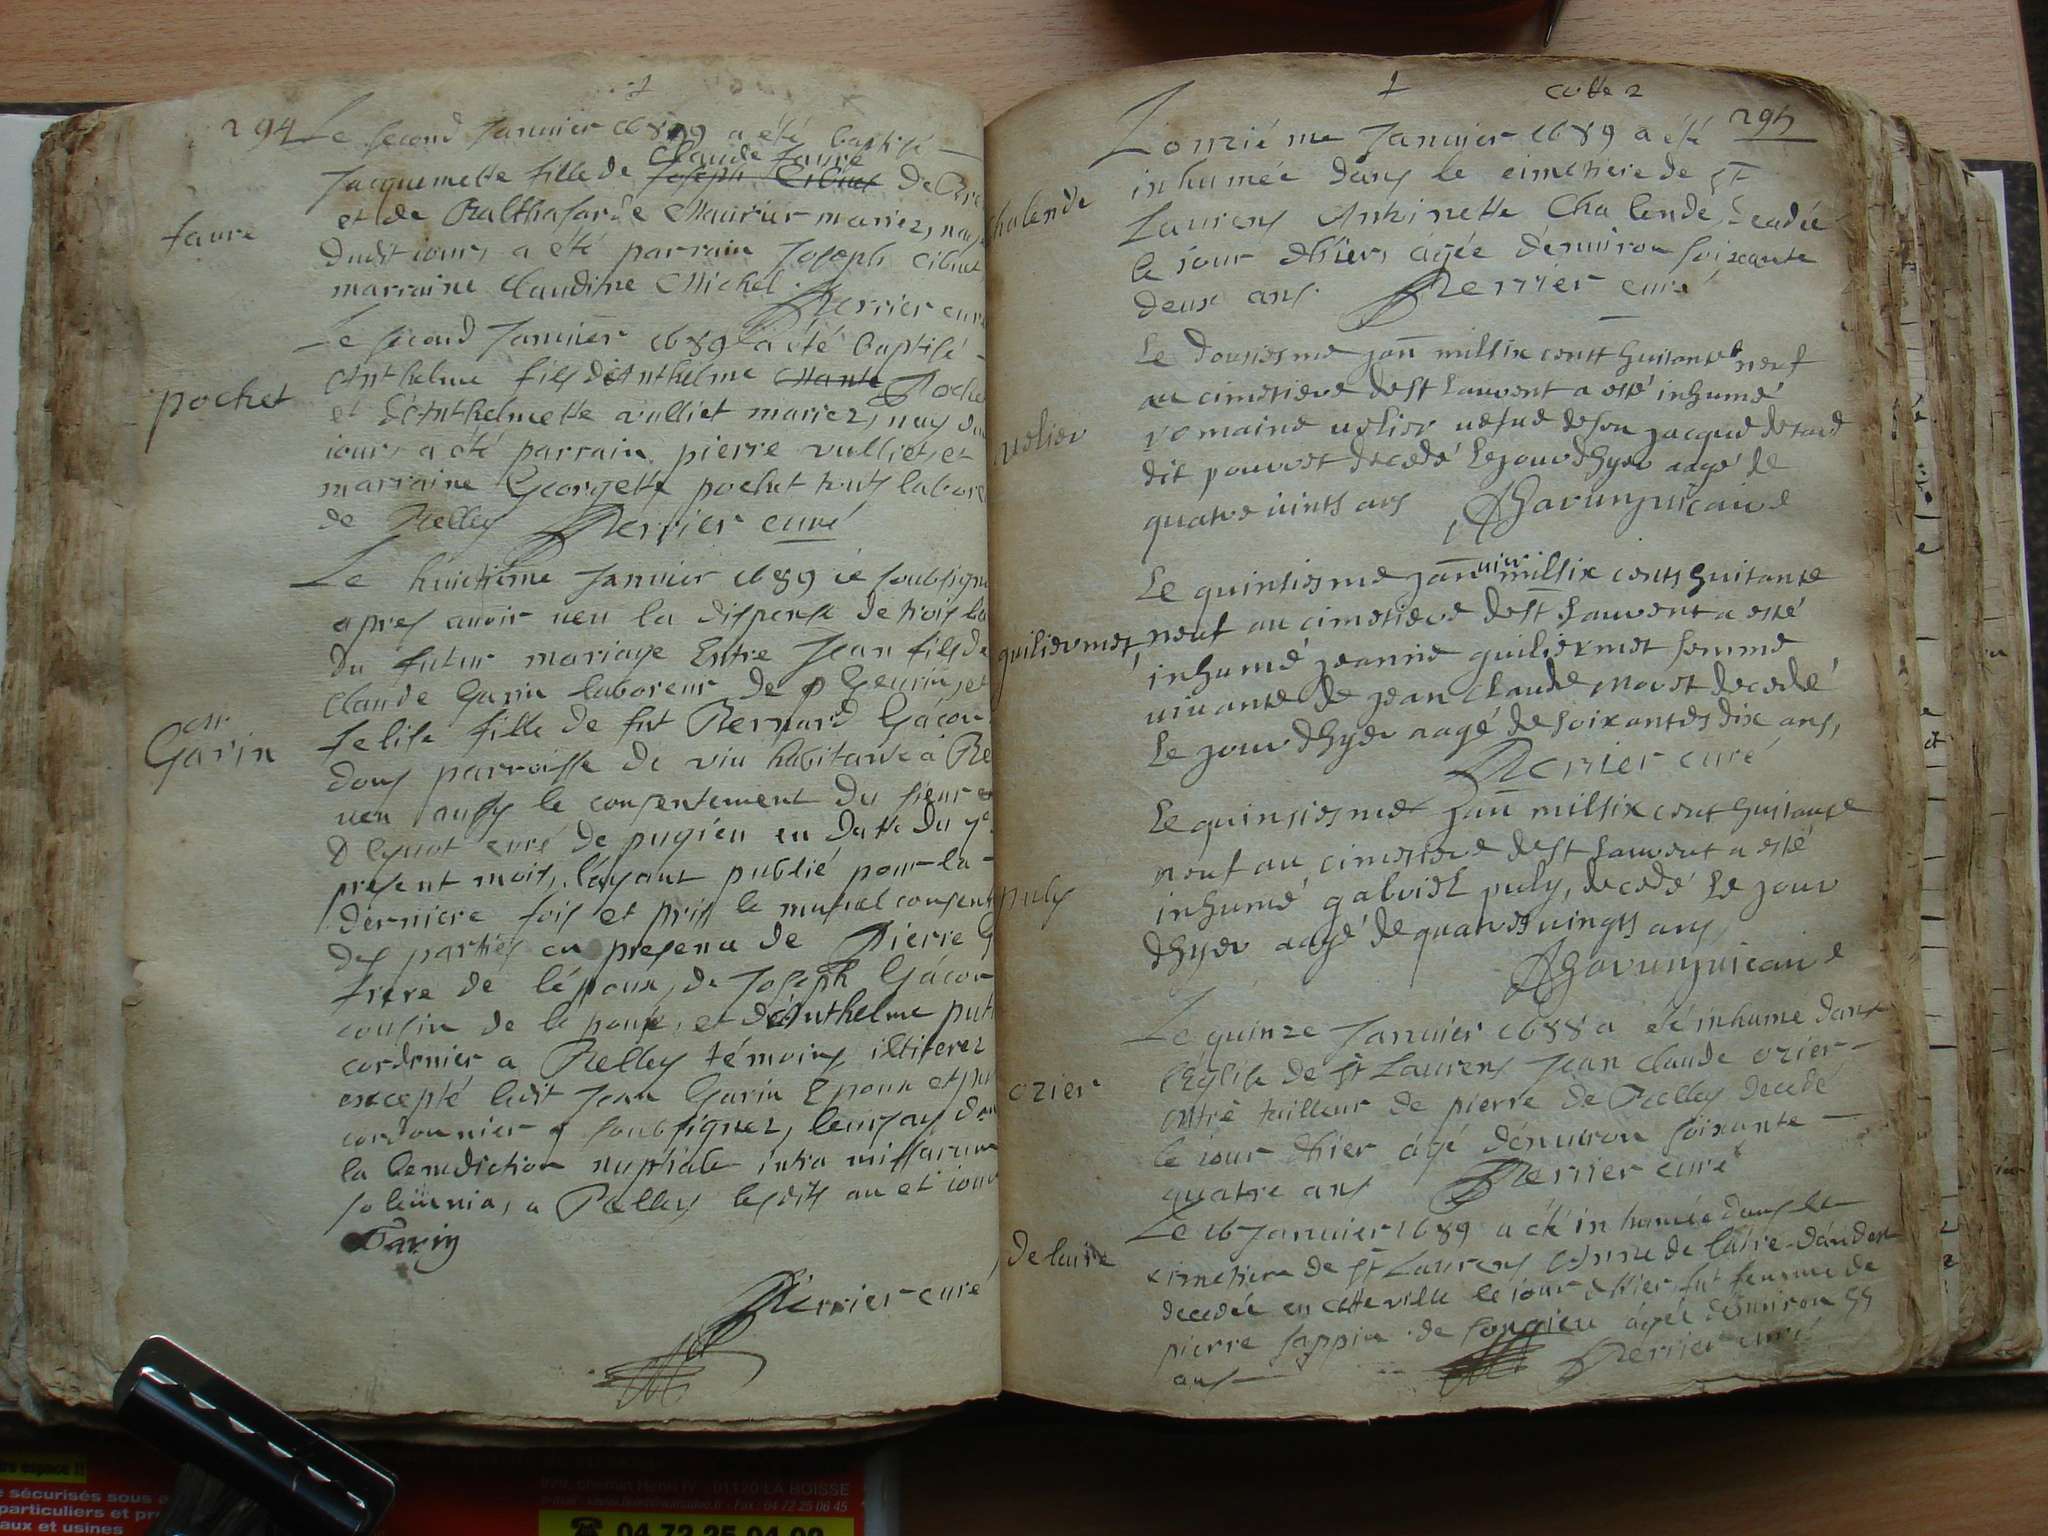 294
Le second Janvier 1689 a été baptisé
Claude faure
Jacquemette fille de Joseph Cibuet de
et de Balthasarde Maurier mariez, nay
dudit iour, a été parrain Joseph Cibuet,
marraine Claudine Michel.
Perrier curé
faure
Le second Janvier 1689 a été baptisé
Anthelme fils d'Anthelme Poche
et d'Anthelmette vulliet mariez, nay du
iour, a été parrain pierre vulliet, et
marraine Georgette pochet touts labore
de Belley Perrier curé
pochet
Le huictième Janvier 1689 ie soubsigné
apres avoir veu la dispense de trois
du futur mariage Entre Jean fils de
Claude Garin laboreur de et
felise fille de fut Bernard Gácon
dous parroisse de viu habitante à Be
veu aussy le consentement du sieur
curé de pugieu en datte du 7e
present mois, l'ayant publié pour la
derniere fois et pris le mutuel consent
des parties en presence de Pierre G
frere de l'époux, de Joseph Gácon
cousin de l'epouse, et d'Anthelme put
cordonier a Belley témoins illiterez
excepté ledit Jean Garin Epoux et put
cordonnier soubsignez, leur ay don
la benediction nuptiale intra missarum
solemnia, a Belley lesdits an et iour
m
Garin
Garin
Perrier curé
1
cotte 2
295
L'onziéme Janvier 1689 a été
inhumée dans le cimetiere de St
Laurens Anthoinette Chalende, decedée
le iour d'hier, agée d'environ soixante
deux ans. Perrier curé
chalende
Le dousiesme jan millsix cents huitante neuf
au cimetiere de st Laurent a esté inhumé
romaine velier vefue de feu jacque
dit pourret decedé le jour d'hyer aagé de
quatre vints ans vicaire
velier
Le quinsiesme janvier millsix cents huitante
neuf au cimetiere de st Laurent a esté
inhumé jeanne guiliermet femme
vivante de jean claude moret decedé
le jour d'hyer aagé de soixantes dix ans,
Perrier curé
guiliermet
Le quinsiesme jan millsix cent huitante
neuf au cimetiere de st Laurent a esté
inhumé gabriel puly, decedé le jour
d'hyer aagé de quatres vingts ans
vicaire
puly
Le quinze Janvier 1688 a été inhumé dans
l'Eglise de St Laurens Jean Claude ozier
tailleur de pierre de Belley decedé
le iour d'hier ágé d'environ soixante
quatre ans Perrier curé
ozier
Le 16 Janvier 1689 a été inhumée dans le
cimetiere de St Laurens Anne de laire
decedée en cette ville le iour d'hier, fut femme de
pierre sappin de songieu ágée d'environ 55
ans Perrier curé
de laire
espace !!
sécurisés sous
particuliers et pr
aux et usines
01120 LA BOISSE
Fax : 04 72 25 06 45